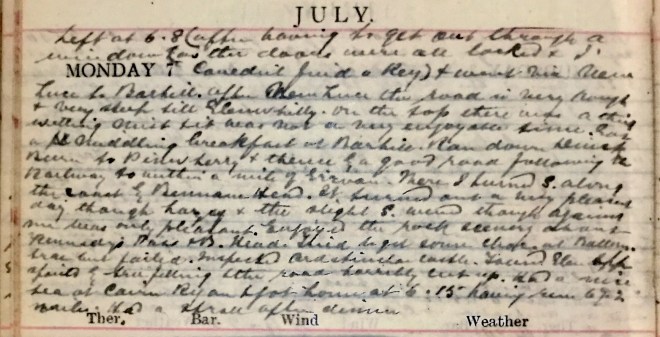 JULY.
Left at 6.8 (after having to get out through a
window as the doors were all locked & I
MONDAY 7 couldn't find a key) & went via New
Luce to Barhill. After New Luce the road is very rough
& very steep hill & hilly. On the top there was a thick
wetting mist & it was not a very enjoyable time. Got
a middling breakfast at Barhill. Ran down
to Pinwherry & thence by a good road following the
Railway to within a mile of Girvan. There I turned S. along
the coast to Bennane Head. It turned out a very pleasant
day though hazy & the slight S. wind though against
me was only pleasant. Enjoyed the rock scenery about
Kennedy's Pass & B. Head. Tried to get some at Ballan-
trae but failed. Inspected Ardstinchar castle. Found Glen App
spoiled by tree felling & the road horribly cut up. Had a nice
tea at Cairn Ryan & got home at 6.15 having run
miles. Had a stroll after dinner
Ther. Bar. Wind Weather